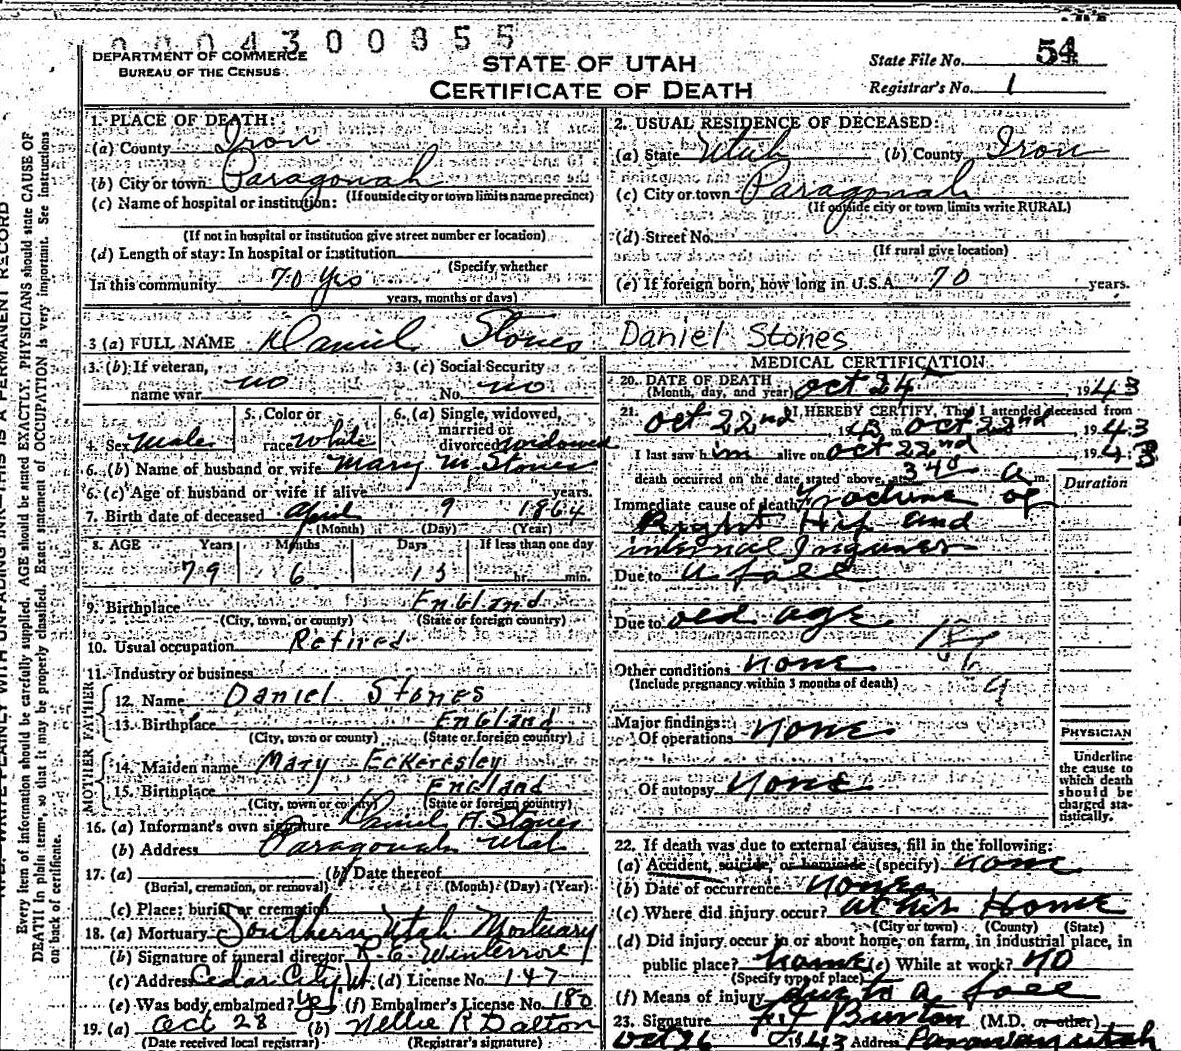 0004300855
DEPARTMENT OF COMMERCE
BUREAU OF THE CENSUS
STATE OF UTAH
CERTIFICATE OF DEATH
State File No. 54
Registrar's No. 1
WRITE PLAINLY WITH UNFADING INK—THIS IS A PERMANENT RECORD
Every item of information should be carefully supplied. AGE should be stated EXACTLY. PHYSICIANS should state CAUSE OF
DEATH in plain terms, so that it may be properly classified. Exact statement of OCCUPATION is very important. See instructions
on back of certificate.
1. PLACE OF DEATH:
(a) County Iron
(b) City or town Paragonah
(If outside city or town limits name precinct)
(c) Name of hospital or institution:
(If not in hospital or institution give street number or location)
(d) Length of stay: In hospital or institution
(Specify whether
In this community 70 yrs
years, months or days)
2. USUAL RESIDENCE OF DECEASED:
(a) State Utah (b) County Iron
(c) City or town Paragonah
(If outside city or town limits write RURAL)
(d) Street No.
(If rural give location)
(e) If foreign born, how long in U.S.A. 70 years.
3 (a) FULL NAME Daniel Stones Daniel Stones
3. (b) If veteran, name war no
3. (c) Social Security No. no
4. Sex Male
5. Color or race White
6. (a) Single, widowed, married or divorced widowed
6. (b) Name of husband or wife Mary M. Stones
6. (c) Age of husband or wife if alive years.
7. Birth date of deceased April 9 1864
(Month) (Day) (Year)
8. AGE Years Months Days If less than one day
79 6 15 hr. min.
9. Birthplace England
(City, town, or county) (State or foreign country)
10. Usual occupation Retired
11. Industry or business
FATHER
12. Name Daniel Stones
13. Birthplace England
(City, town or county) (State or foreign country)
MOTHER
14. Maiden name Mary Eckeresley
15. Birthplace England
(City, town or county) (State or foreign country)
16. (a) Informant's own signature Daniel H. Stones
(b) Address Paragonah Utah
17. (a) (b) Date thereof
(Burial, cremation, or removal) (Month) (Day) (Year)
(c) Place: burial or cremation
18. (a) Mortuary Southern Utah Mortuary
(b) Signature of funeral director R. E. Winterrose
(c) Address Cedar City Ut. (d) License No. 147
(e) Was body embalmed? Yes (f) Embalmer's License No. 180
19. (a) Oct 28 (b) Nellie R Dalton
(Date received local registrar) (Registrar's signature)
MEDICAL CERTIFICATION
20. DATE OF DEATH
(Month, day, and year) Oct 24 1943
21. I HEREBY CERTIFY, That I attended deceased from
Oct 22nd 1943 to Oct 22nd, 1943
I last saw him alive on Oct 22nd, 1943
death occurred on the date stated above, at 340 a m.
Duration
Immediate cause of death Fracture of
Right Hip and
internal Injuries
Due to a fall
Due to old age
Other conditions none
(Include pregnancy within 3 months of death)
Major findings:
Of operations none
Of autopsy none
PHYSICIAN
Underline
the cause to
which death
should be
charged sta-
tistically.
22. If death was due to external causes, fill in the following:
(a) Accident, suicide, or homicide (specify) none
(b) Date of occurrence none
(c) Where did injury occur? at his Home
(City or town) (County) (State)
(d) Did injury occur in or about home, on farm, in industrial place, in
public place? home (e) While at work? no
(Specify type of place)
(f) Means of injury due to a fall
23. Signature Burton (M.D. or other)
Oct 26 1943 Address Parowan utah